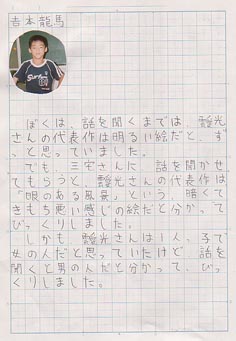 吉本龍馬
ぼくは、話を聞くまでは、靉光
さんの代表作は明るい絵だと、ず
っと思っていました。
でも、三宅さんに、話を聞かせ
てもらうと、靉光さんの代表作は
「眼のある風景」という、暗くて
きもち悪い感じの絵だと分かって
びっくりしました。
しかも、靉光さんは1人っ子で
女の人だと思っていたけど、話を
聞くと男の人だと分かって、びっ
くりしました。